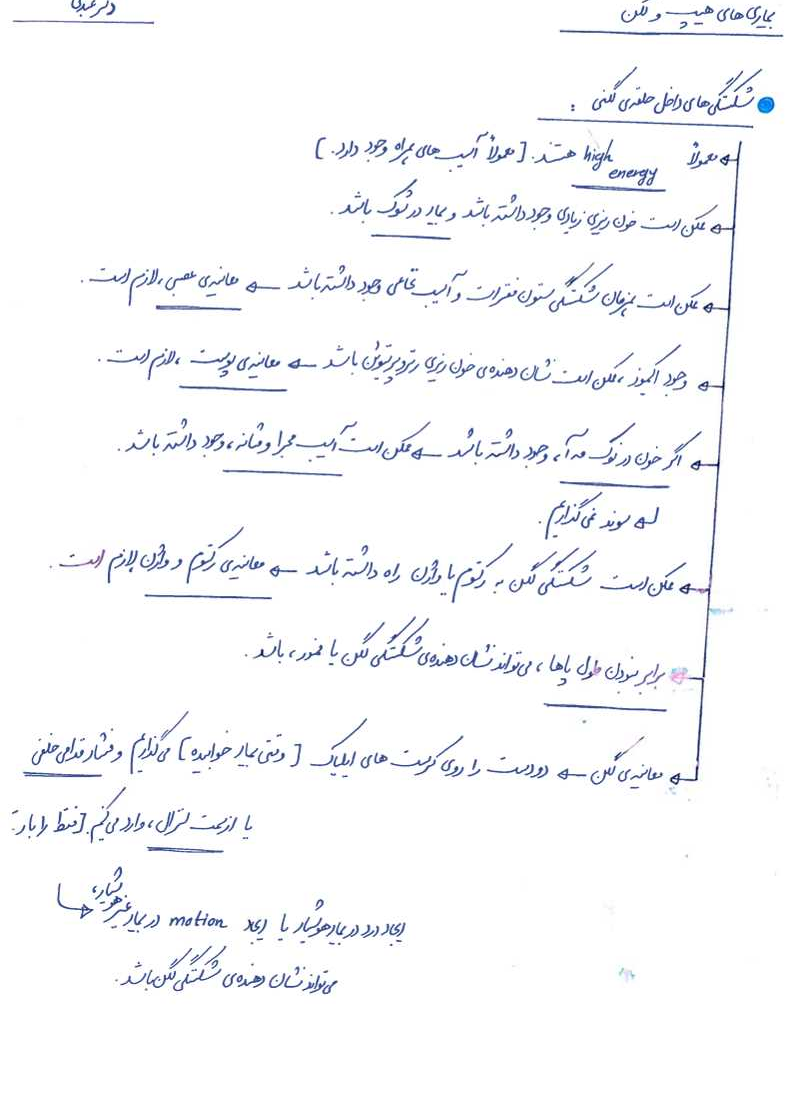 بیماری های هیپ و لگن
دکتر عبدی
شکستگی های داخل حلقه ی لگنی :
معمولاً high energy هستند. [معمولاً آسیب های همراه وجود دارد.]
ممکن است خون ریزی زیادی وجود داشته باشد و بیمار در شوک باشد.
ممکن است همزمان شکستگی ستون فقرات و آسیب نخاعی وجود داشته باشد ← معاینه ی عصبی، لازم است.
وجود اکیموز، ممکن است نشان دهنده ی خون ریزی رتروپریتوئن باشد ← معاینه ی پوست، لازم است.
اگر خون در نوک مه آ، وجود داشته باشد ← ممکن است آسیب مجرا و مثانه، وجود داشته باشد.
سوند نمی گذاریم.
ممکن است شکستگی لگن به رکتوم یا واژن راه داشته باشد ← معاینه ی رکتوم و واژن لازم است.
برابر نبودن طول پاها، می تواند نشان دهنده ی شکستگی لگن یا فمور، باشد.
معاینه ی لگن ← دو دست را روی کرست های ایلیاک [وقتی بیمار خوابیده] می گذاریم و فشار قدامی خلفی
یا از سمت لترال، وارد می کنیم. [فقط 1 بار
ایجاد درد در بیمار هوشیار یا ایجاد motion در بیمار غیرهوشیار،
می تواند نشان دهنده ی شکستگی لگن باشد.